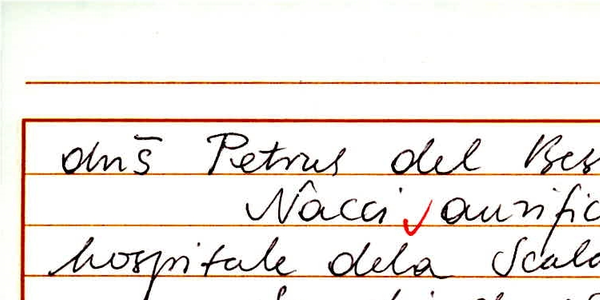 dns̄ Petrus del Bes
Nacci aurific
hospitale dela Scala